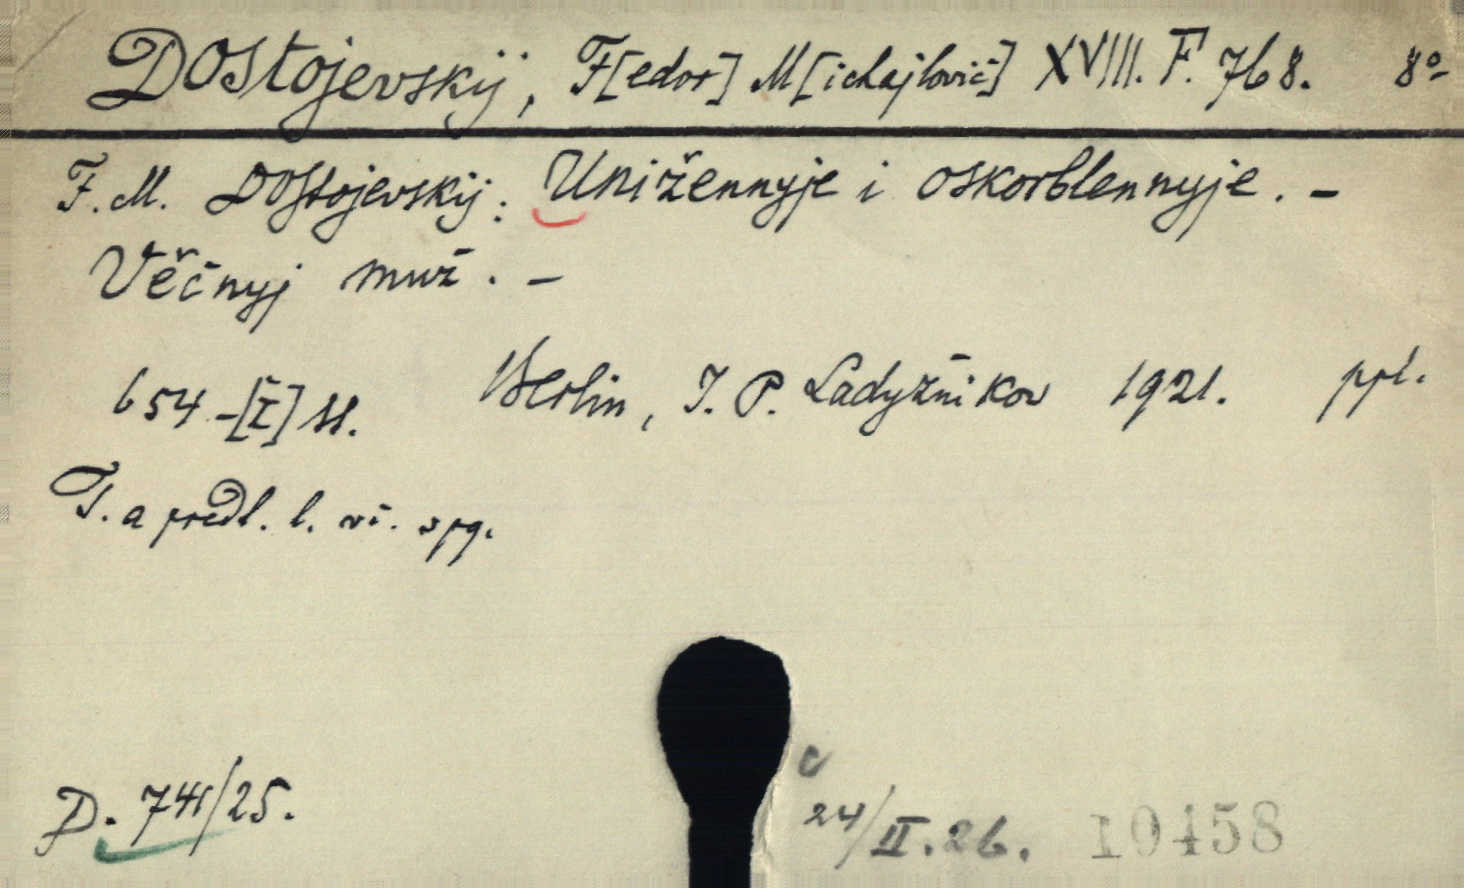 Dostojevskij, F[edor] M[ichajlovič] XVIII. F. 768. 8º
F. M. Dostojevskij: Uniženyje i oskorblennyje. –
Věčnyj muž. –
654 - [I] ss. Berlin, I. P. Ladyžnikov 1921. ppl.
T. a předl. l. vč. v pg.
D. 741/25.
c
24/II.26. 10458